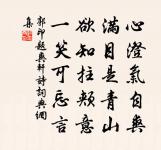 心澄氣自爽
滿目是青山
欲知拄頰意
一笑可忘言
郭印題爽軒詩詞典網
集